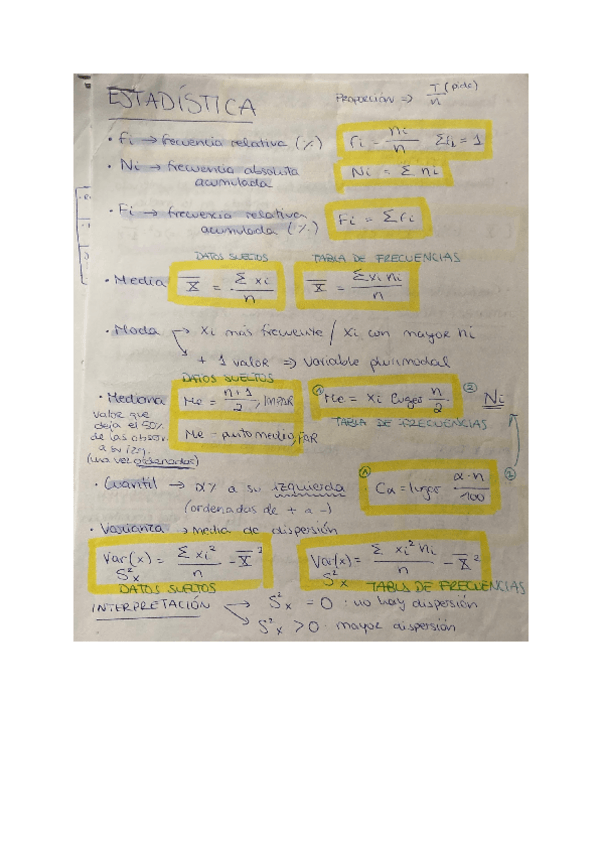 ESTADÍSTICA
PROPORCIÓN => T (pide) / n
· fi → frecuencia relativa (%) fi = ni / n Σfi = 1
· Ni → frecuencia absoluta acumulada Ni = Σ ni
· Fi → frecuencia relativa acumulada (%) Fi = Σ fi
DATOS SUELTOS TABLA DE FRECUENCIAS
· Media x̄ = Σ xi / n x̄ = Σ xi ni / n
· Moda → xi más frecuente / xi con mayor ni
→ + 1 valor => variable plurimodal
DATOS SUELTOS
· Mediana Me = n+1 / 2, IMPAR ① Me = xi lugar n / 2. ② Ni
valor que
deja el 50%
de las observ.
a su izq.
(una vez ordenadas)
Me = punto medio, PAR
TABLA DE FRECUENCIAS
· Cuantil → α% a su izquierda ① Cα = lugar α·n / 100 ②
(ordenadas de + a -)
· Varianza → media de dispersión
Var(x) = Σ xi² / n - x̄² Var(x) = Σ xi² ni / n - x̄²
S²x S²x
DATOS SUELTOS TABLA DE FRECUENCIAS
INTERPRETACIÓN → S²x = 0 : no hay dispersión
→ S²x > 0 · mayor dispersión